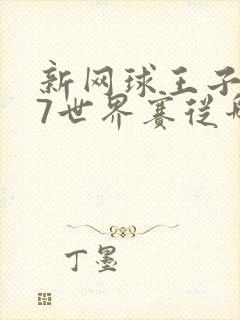 新网球王子
7世界赛从
丁墨